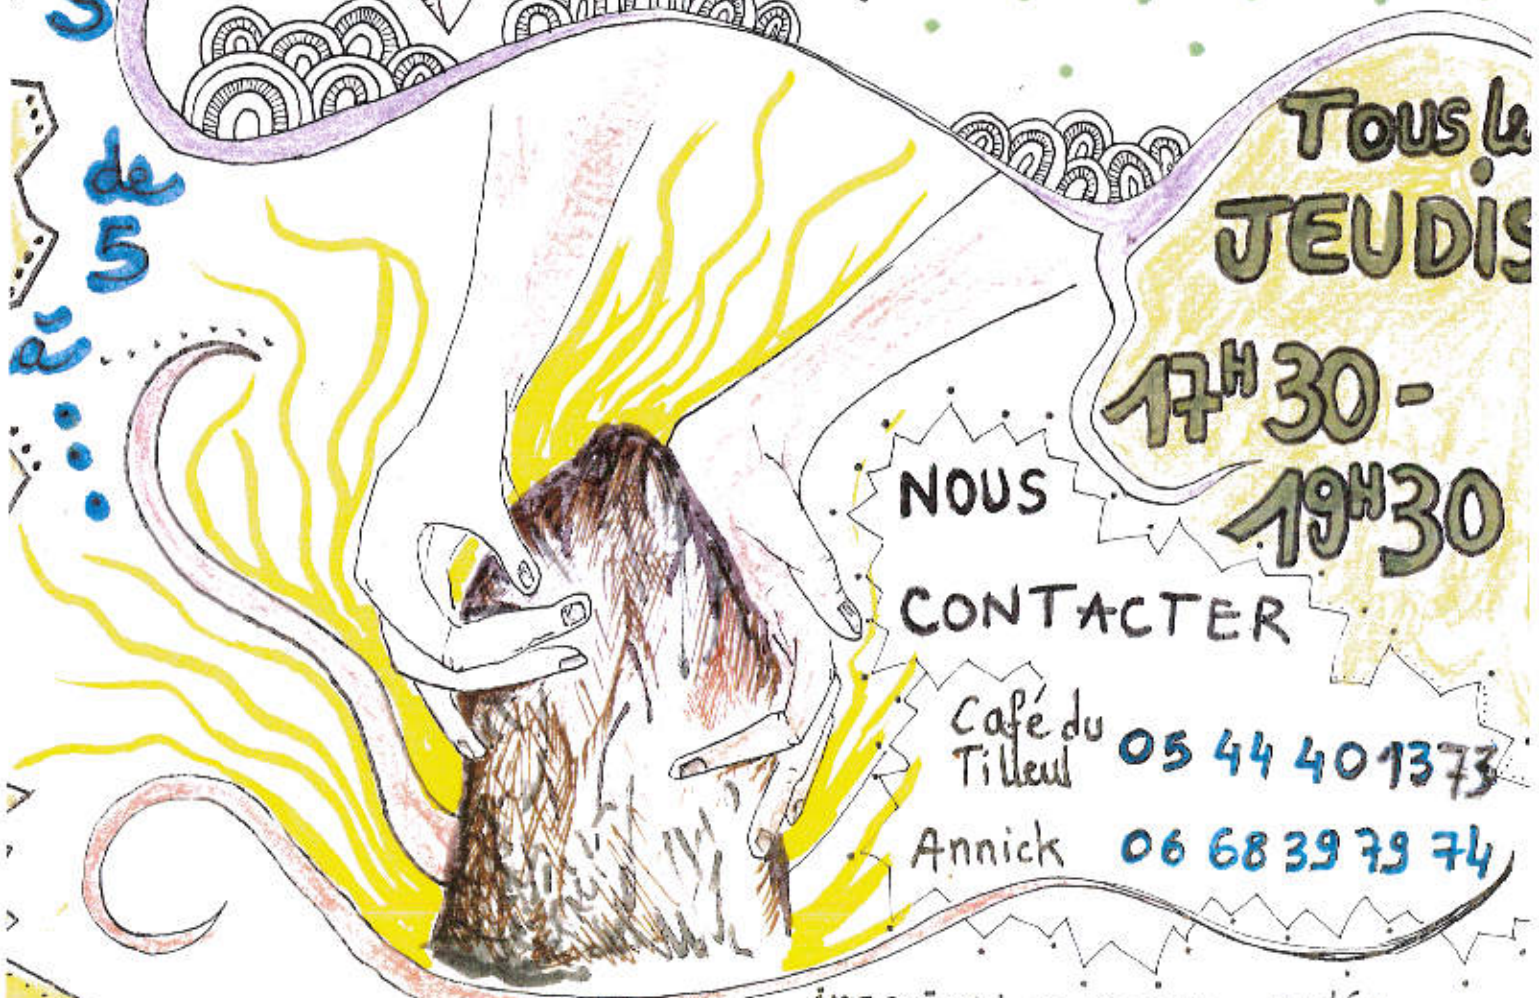 de
5
à
Tous le
JEUDIS
17H30-
19H30
NOUS
CONTACTER
Café du
Tilleul 05 44 40 13 73
Annick 06 68 39 79 74